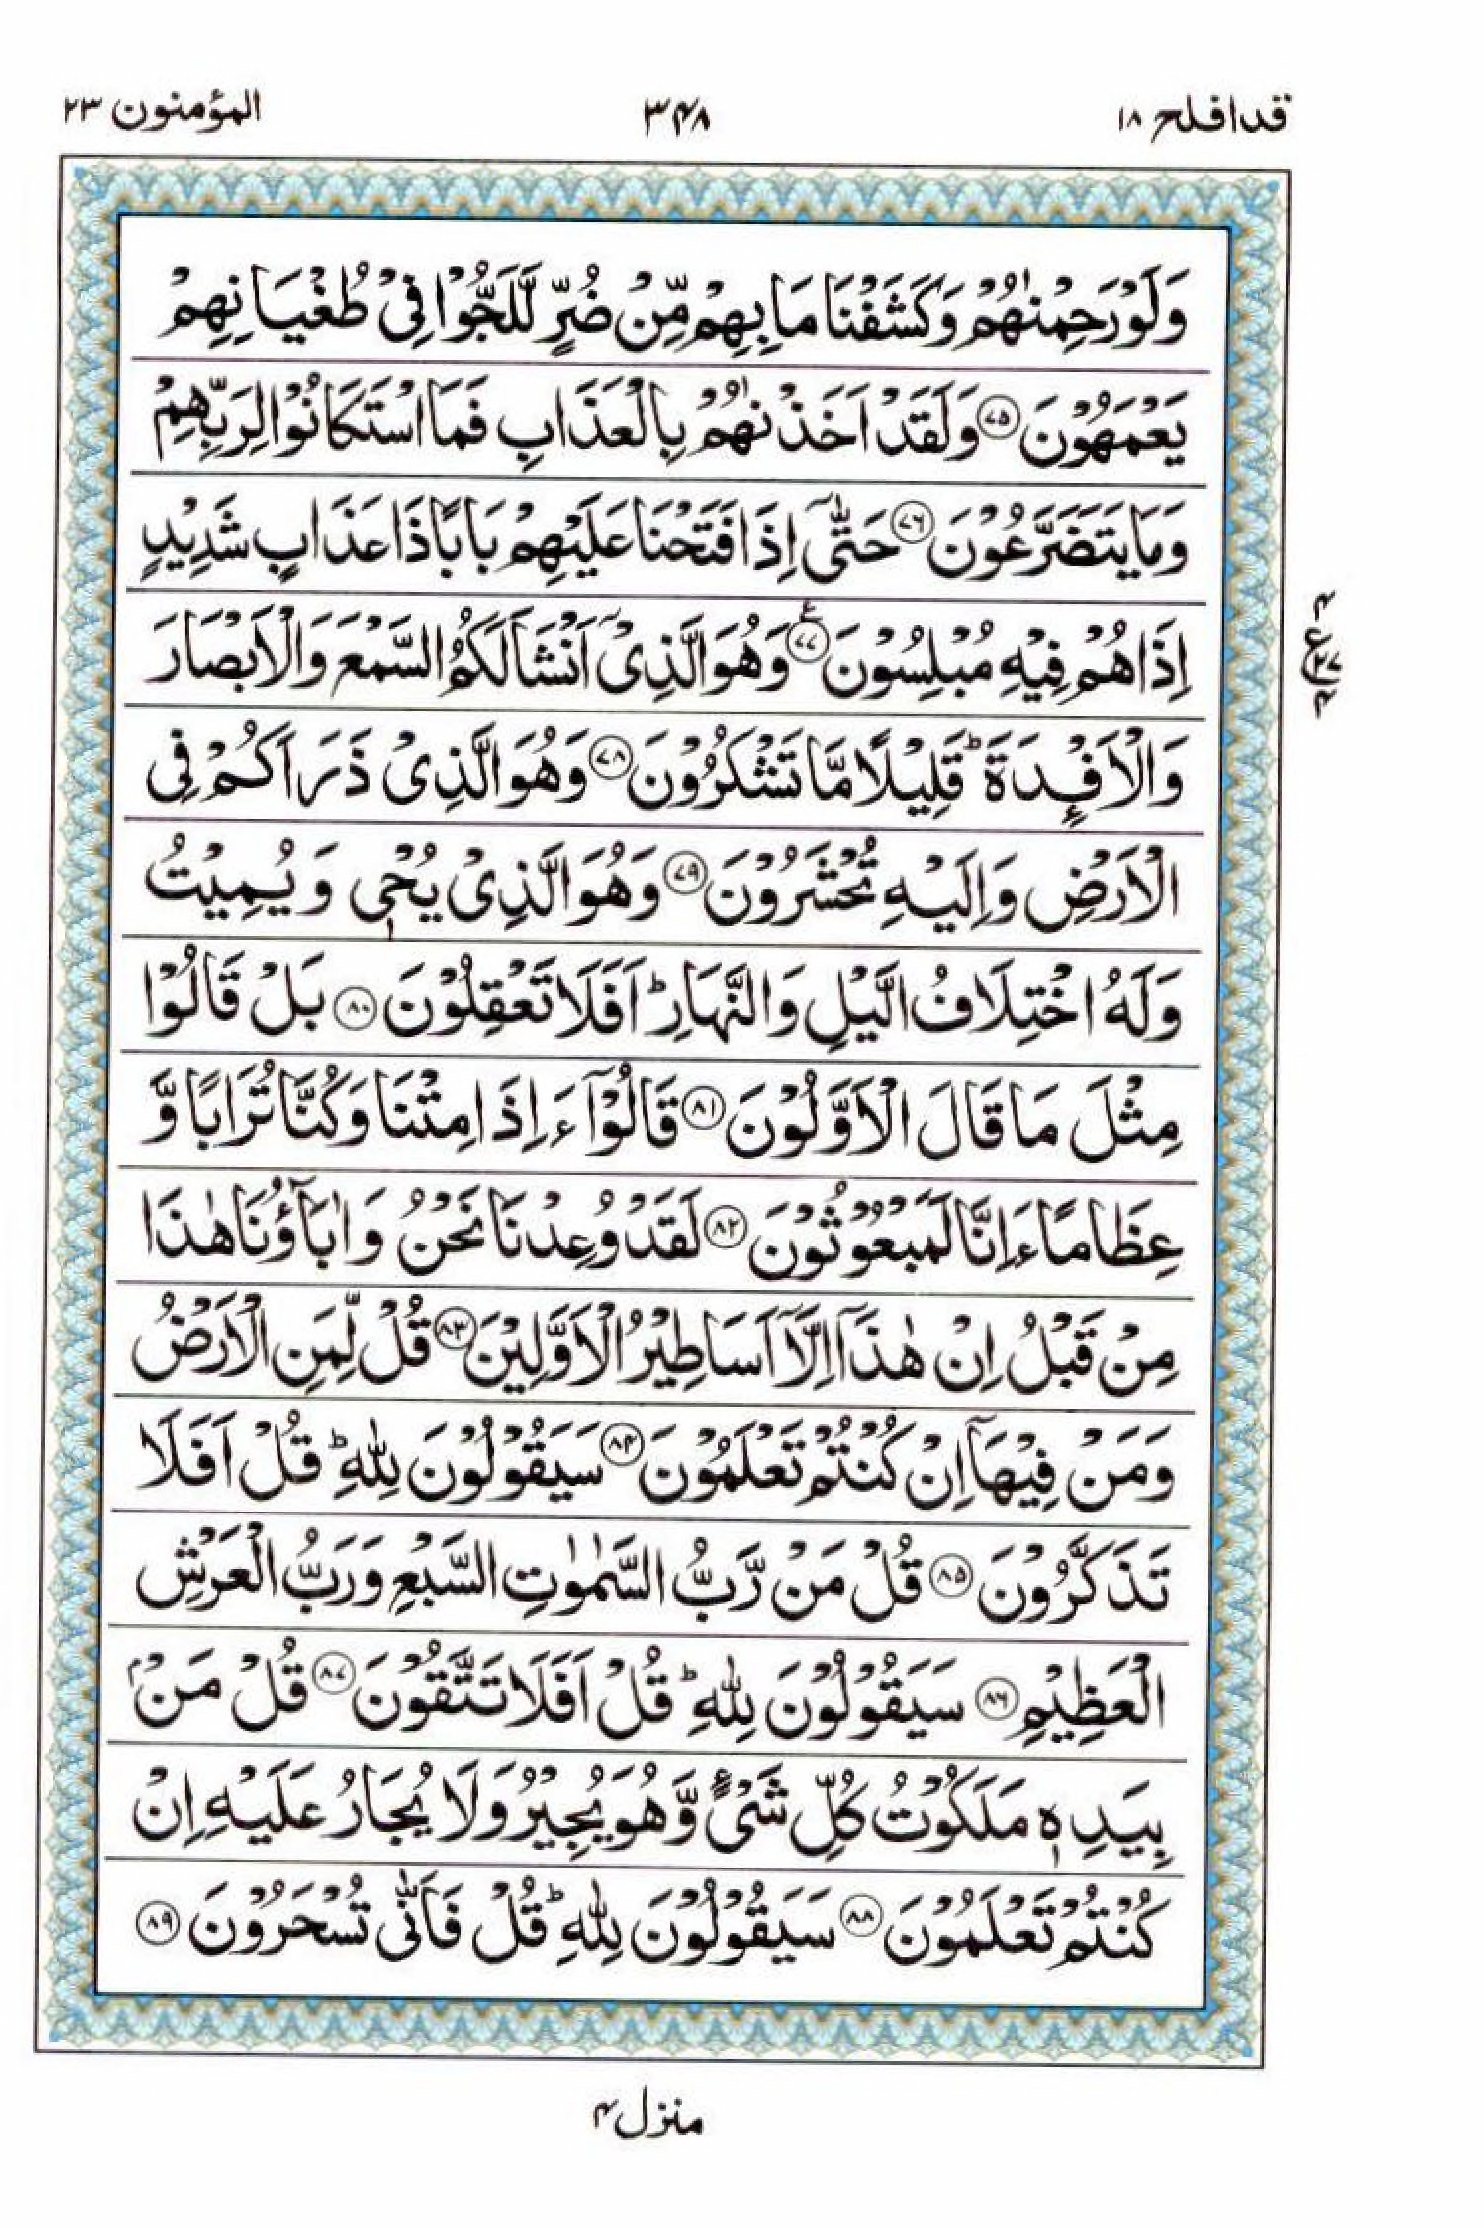 قد افلح ۱۸
۳۴۸
المؤمنون ۲۳
وَلَوْ رَحِمْنٰهُمْ وَكَشَفْنَا مَا بِهِمْ مِّنْ ضُرٍّ لَّلَجُّوْا فِیْ طُغْیَانِهِمْ
یَعْمَهُوْنَ ﴿۷۵﴾ وَلَقَدْ اَخَذْنٰهُمْ بِالْعَذَابِ فَمَا اسْتَكَانُوْا لِرَبِّهِمْ
وَمَا یَتَضَرَّعُوْنَ ﴿۷۶﴾ حَتّٰۤی اِذَا فَتَحْنَا عَلَیْهِمْ بَابًا ذَا عَذَابٍ شَدِیْدٍ
اِذَا هُمْ فِیْهِ مُبْلِسُوْنَ ﴿۷۷﴾ؒ وَهُوَ الَّذِیْۤ اَنْشَاَ لَكُمُ السَّمْعَ وَالْاَبْصَارَ
وَالْاَفْـِٕدَةَ ؕ قَلِیْلًا مَّا تَشْكُرُوْنَ ﴿۷۸﴾ وَهُوَ الَّذِیْ ذَرَاَكُمْ فِی
الْاَرْضِ وَاِلَیْهِ تُحْشَرُوْنَ ﴿۷۹﴾ وَهُوَ الَّذِیْ یُحْیٖ وَیُمِیْتُ
وَلَهُ اخْتِلَافُ الَّیْلِ وَالنَّهَارِ ؕ اَفَلَا تَعْقِلُوْنَ ﴿۸۰﴾ بَلْ قَالُوْا
مِثْلَ مَا قَالَ الْاَوَّلُوْنَ ﴿۸۱﴾ قَالُوْۤا ءَاِذَا مِتْنَا وَكُنَّا تُرَابًا وَّ
عِظَامًا ءَاِنَّا لَمَبْعُوْثُوْنَ ﴿۸۲﴾ لَقَدْ وُعِدْنَا نَحْنُ وَاٰبَآؤُنَا هٰذَا
مِنْ قَبْلُ اِنْ هٰذَاۤ اِلَّاۤ اَسَاطِیْرُ الْاَوَّلِیْنَ ﴿۸۳﴾ قُلْ لِّمَنِ الْاَرْضُ
وَمَنْ فِیْهَاۤ اِنْ كُنْتُمْ تَعْلَمُوْنَ ﴿۸۴﴾ سَیَقُوْلُوْنَ لِلّٰهِ ؕ قُلْ اَفَلَا
تَذَكَّرُوْنَ ﴿۸۵﴾ قُلْ مَنْ رَّبُّ السَّمٰوٰتِ السَّبْعِ وَرَبُّ الْعَرْشِ
الْعَظِیْمِ ﴿۸۶﴾ سَیَقُوْلُوْنَ لِلّٰهِ ؕ قُلْ اَفَلَا تَتَّقُوْنَ ﴿۸۷﴾ قُلْ مَنْۢ
بِیَدِهٖ مَلَكُوْتُ كُلِّ شَیْءٍ وَّهُوَ یُجِیْرُ وَلَا یُجَارُ عَلَیْهِ اِنْ
كُنْتُمْ تَعْلَمُوْنَ ﴿۸۸﴾ سَیَقُوْلُوْنَ لِلّٰهِ ؕ قُلْ فَاَنّٰی تُسْحَرُوْنَ ﴿۸۹﴾
منزل ۴